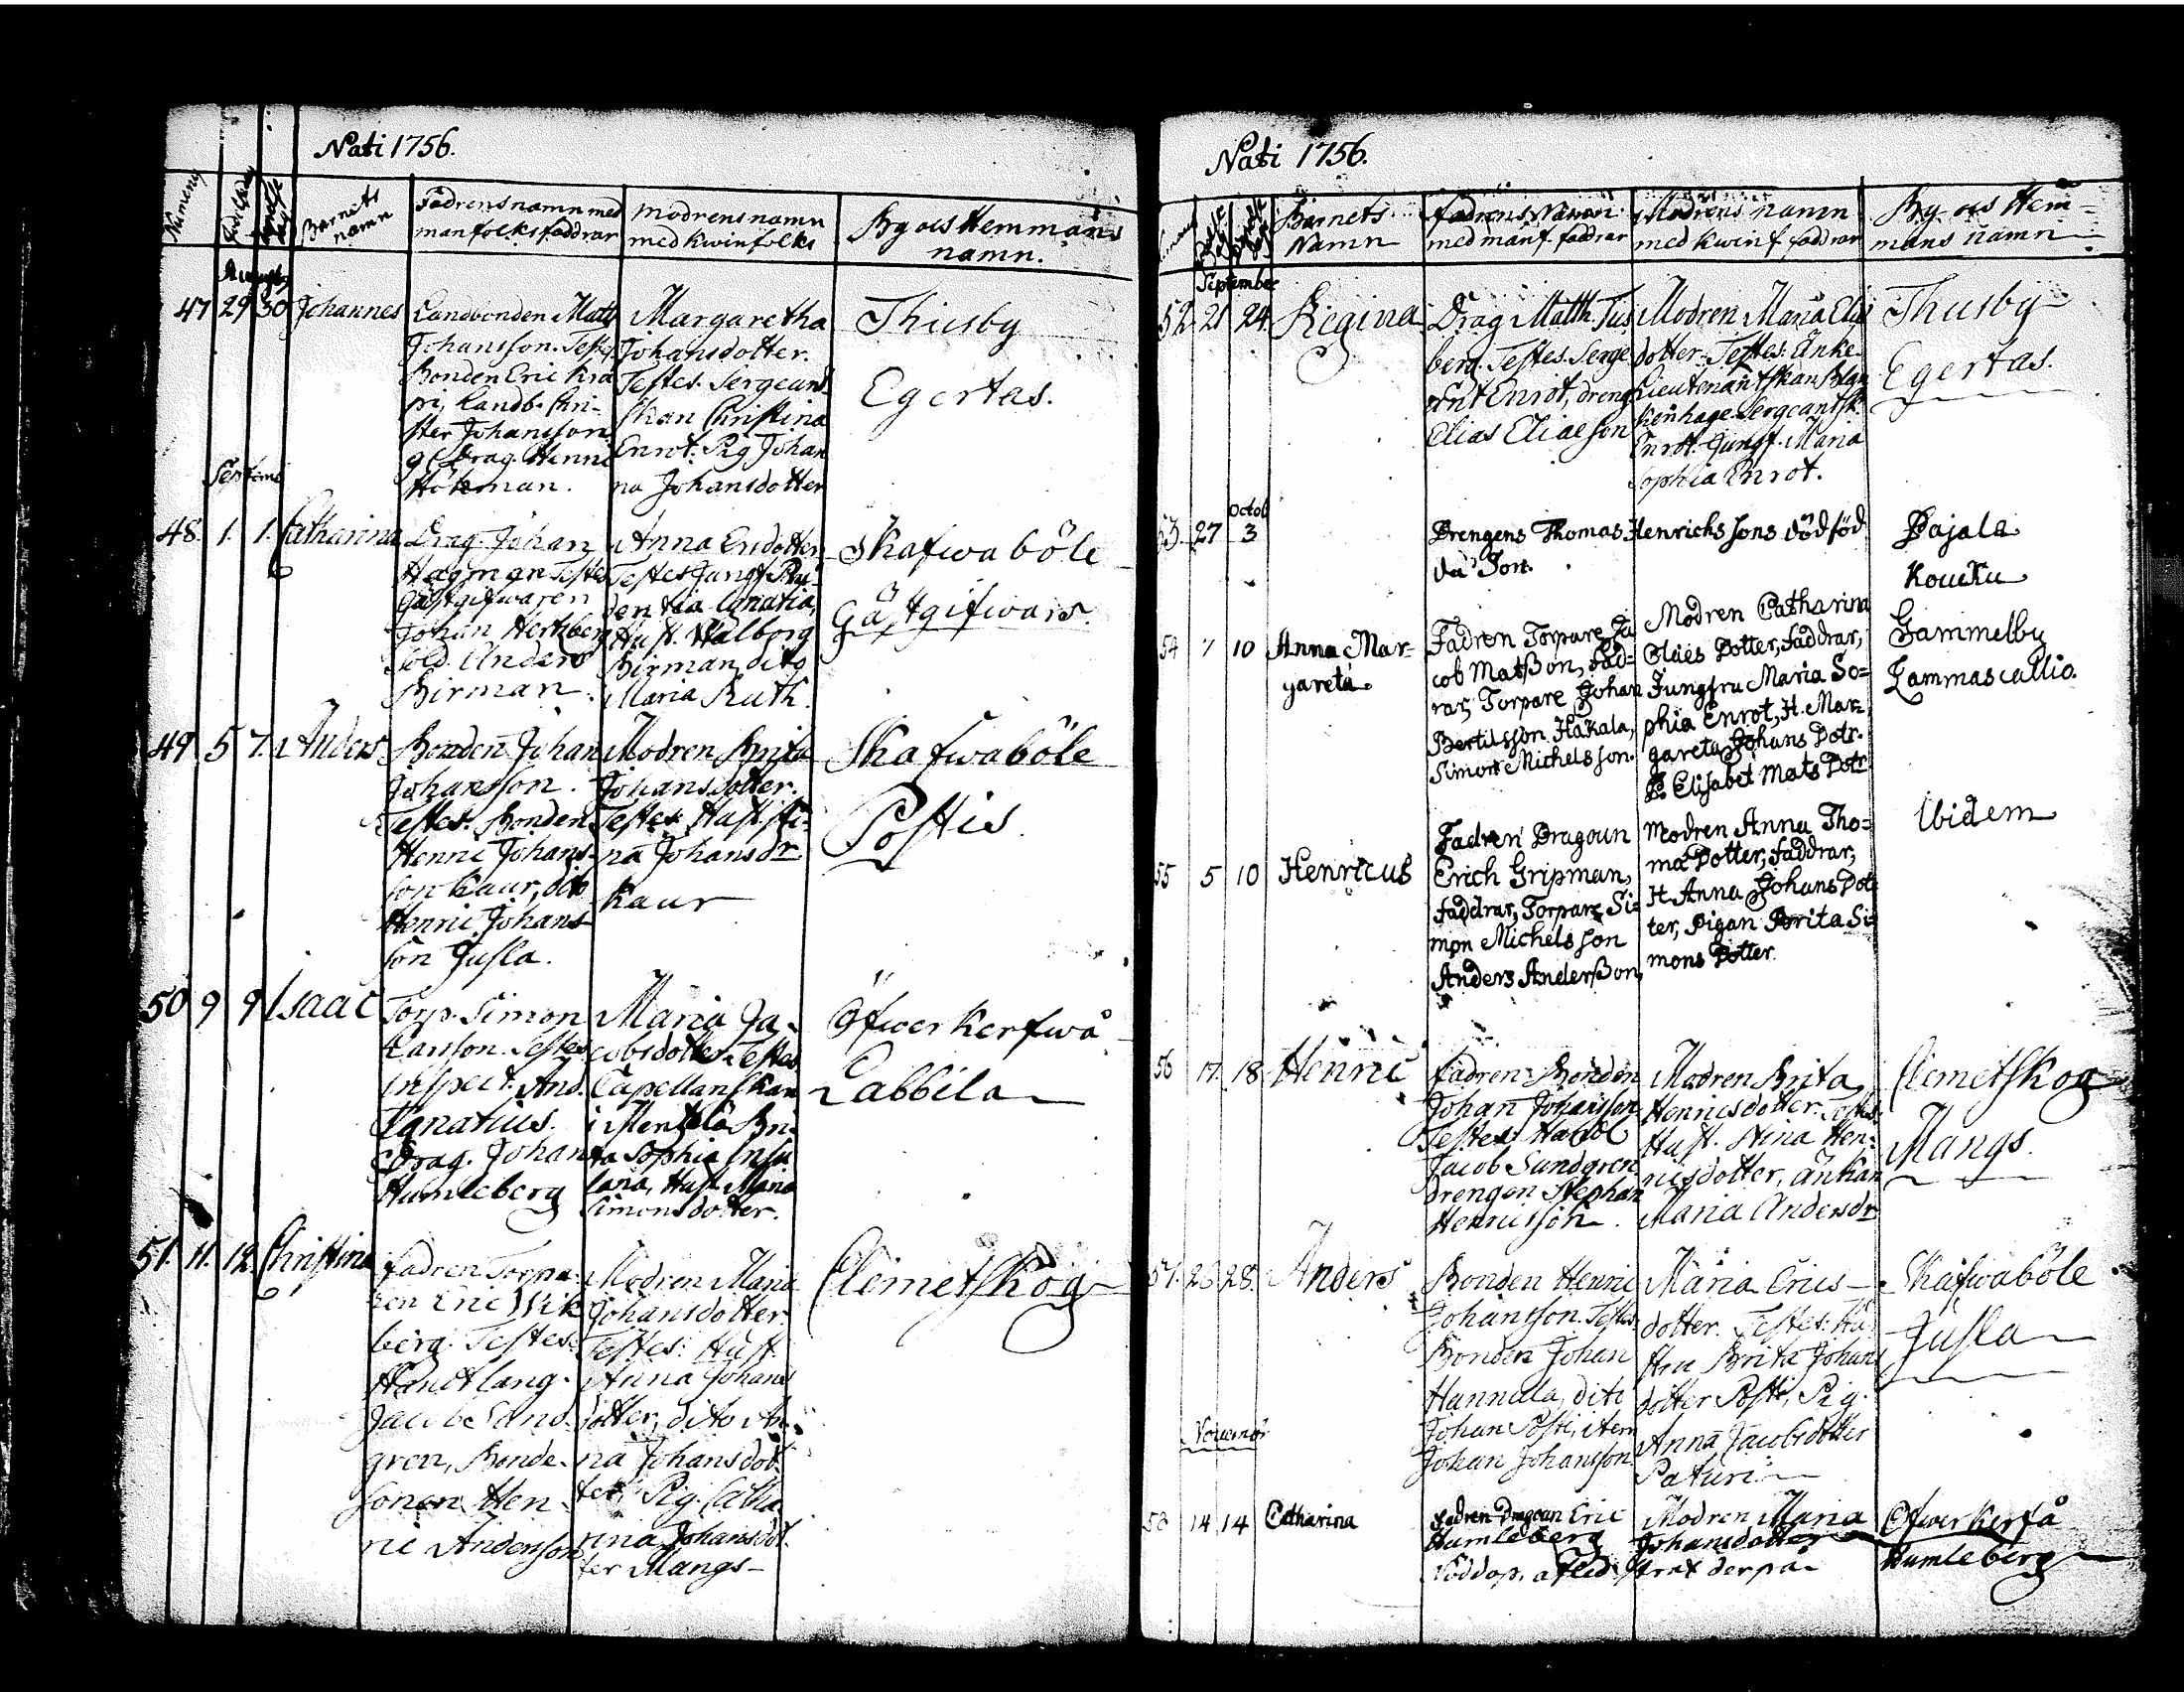 Nati 1756.
Barnets namn
Fadrens namn med manfolks faddrar
Modrens namn med kwinfolks
By ocĥ Hemmans namn.
Augusty
47 29 30 Johannes
Landbonden Matts
Johansson. Testes
Bonden Eric
Landb. Chri-
ster Johansson
Drag. Henric
Hökman.
Margaretha
Johansdotter.
Testes. Sergeant
skan Christina
Enrot. Pig. Johan
na Johansdotter
Thusby
Egertas.
Septemb
48. 1. 1. Catharina
Drag. Johan
Hagman Testes
Gästgifwaren
Johan Hertzberg
Sold. Anders
Birman.
Anna Ersdotter
Testes Jungf. Pru
dentia Ignatia,
Hust. Walborg
Birman, dito
Maria Ruth.
Skafwaböle
Gästgifwars.
49 5 7. Anders
Bonden Johan
Johansson.
Testes. Bonden
Henric Johans-
son Kaur, dito
Henric Johans
son Jusla.
Modren Brita
Johansdotter.
Testes Hust. Sti-
na Johansdr
Kaur
Skafwaböle
Postis
50 9 9 Isaac
Torp. Simon
Larsson. Testes
Inspect. And.
Ignatius.
Drag. Johan
Humleberg
Maria Ja-
cobsdotter Testes
Capellanskan
i Mentzälä Bri
ta Sophia
Hust. Maria
Simonsdotter.
Öfwerkerfwå
Labbila
51. 11. 12. Christina
fadren Torpa-
ren Eric Wik
berg. Testes:
Handtlang.
Jacob Sund-
gren, Bonde-
sonen Hen-
ric Andersson
Modren Maria
Johansdotter.
Testes: Hust.
Anna Johans
dotter, dito An-
na Johansdot-
ter, Pig. Catha
rina Johansdot.
ter Mangs
Clemetskog
Nati 1756.
Barnets Namn
fadrens Namn med manf. faddrar
Modrens namn med kwinf faddrar
By. ocĥ Hem-
mans namn
September
52. 21 24. Regina
Drag. Matth. Tus
berg. Testes. Serge
ant Enrot, dreng
Elias Eliaeson
Modren Maria Elia
dotter. Testes: Änke-
Lieutenantskan Blan
kenhage. Sergeantsk.
Enrot. Jungf. Maria
Sophia Enrot.
Thusby
Egertas.
Octob
53. 27 3
Drengens Thomas Henrichssons dödföd
da Son.
Pajala
Koucku
54 7 10 Anna Mar-
gareta.
Fadren Torpare Ja
cob Matßon, Fad-
rar, Torpare Johan
Bertilsson Hakala,
Simon Michelsson.
Modren Catharina
Claes Dotter, faddrar,
Jungfru Maria So-
phia Enrot, H. Mar
gareta Johans Dotr.
P. Elisabet Mats Dotr.
Gammelby
Lammascallio.
55 5 10 Henricus
Fadren Dragoun
Erich Gripman,
faddrar, Torpare Si-
mon Michelsson
Anders Anderßon,
Modren Anna Tho-
mæ Dotter, faddrar,
H. Anna Johans Dot-
ter, Pigan Brita Si-
mons Dotter.
Ibidem
56 17. 18 Henric
fadren Bonden
Johan Johansson
Testes: Handl
Jacob Sundgren
drengen Stephan
Henricsson.
Modren Brita
Henricsdotter. Testes
Hust. Stina Hen-
ricsdotter, änkan
Maria Andersdr
Clemetskog
Mangs.
57. 23 28. Anders
Bonden Henric
Johansson. Testes.
Bonden Johan
Hannula, dito
Johan Posti, item
Johan Johansson
Maria Erics-
dotter. Testes: Hu-
stru Brita Johans
dotter Posti, Pig.
Anna Jacobsdotter
Paturi
Skafwaböle
Jusla
Novembr
58 14 14 Catharina
Fadren Dragoun Eric
Humleberg
Nöddop. afled. strax derpå
Modren Maria
Johansdotter
Öfwerkerfå
Humleberg